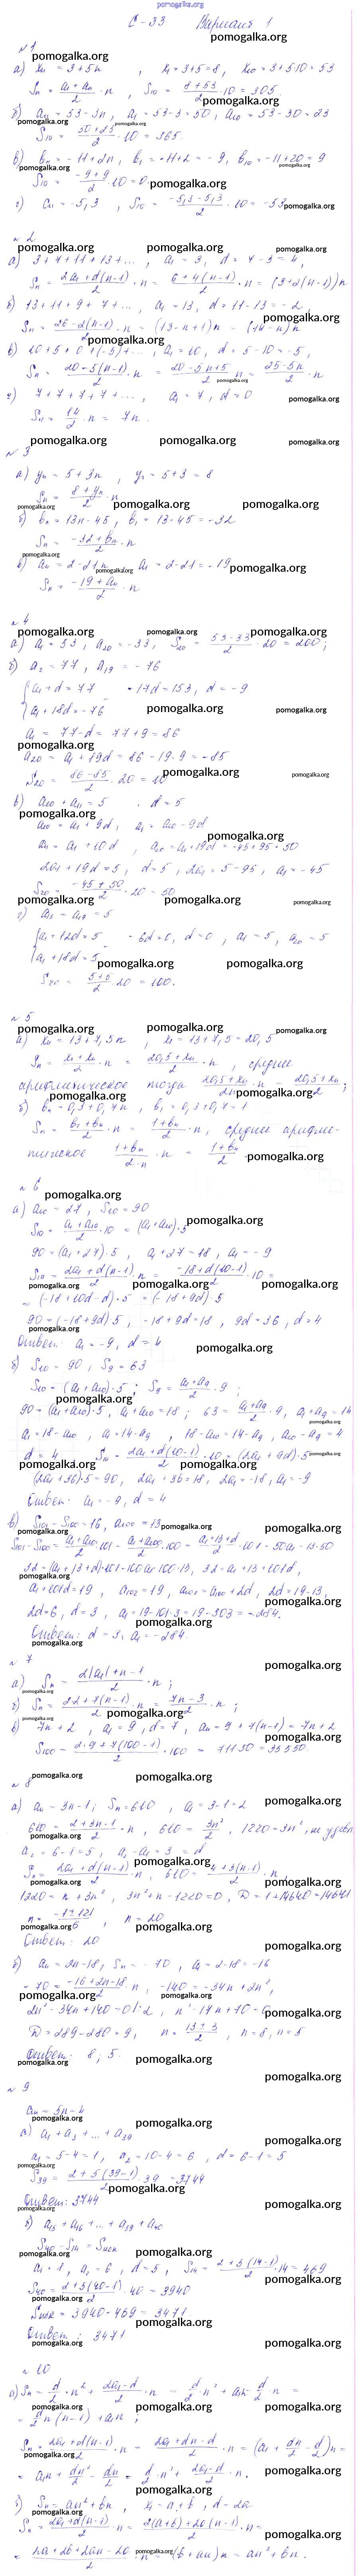 С-33 Вариант 1
№1
а) xₙ = 3+5n, x₁ = 3+5 = 8, x₁₀ = 3+5·10 = 53
Sₙ = (a₁+aₙ)/2 · n, S₁₀ = (8+53)/2 · 10 = 305.
б) aₙ = 53-3n, a₁ = 53-3 = 50, a₁₀ = 53-30 = 23
S₁₀ = (50+23)/2 · 10 = 365.
в) bₙ = -11+2n, b₁ = -11+2 = -9, b₁₀ = -11+20 = 9
S₁₀ = (-9+9)/2 · 10 = 0
г) aₙ = -5,3, S₁₀ = (-5,3-5,3)/2 · 10 = -53
№2
а) 3+7+11+13+..., a₁ = 3, d = 7-3 = 4,
Sₙ = (2a₁+d(n-1))/2 · n = (6+4(n-1))/2 · n = (3+2(n-1))n
б) 13+11+9+7+..., a₁ = 13, d = 11-13 = -2,
Sₙ = (26-2(n-1))/2 · n = (13-n+1)n = (14-n)n
в) 10+5+0+(-5)+..., a₁ = 10, d = 5-10 = -5,
Sₙ = (20-5(n-1))/2 · n = (20-5n+5)/2 n = (25-5n)/2 · n
г) 7+7+7+7+..., a₁ = 7, d = 0
Sₙ = 14/2 · n = 7n.
№3
а) yₙ = 5+3n, y₁ = 5+3 = 8
Sₙ = (8+yₙ)/2 · n
б) bₙ = 13n-45, b₁ = 13-45 = -32
Sₙ = (-32+bₙ)/2 · n
в) aₙ = 2-21n, a₁ = 2-21 = -19
Sₙ = (-19+aₙ)/2 · n
№4
а) a₁ = 53, a₂₀ = -33, S₂₀ = (53-33)/2 · 20 = 200;
б) a₂ = 77, a₁₉ = -76
{a₁+d = 77 -17d = 153, d = -9
{a₁+18d = -76
a₁ = 77-d = 77+9 = 86
a₂₀ = a₁+19d = 86-19·9 = -85
S₂₀ = (86-85)/2 · 20 = 10
в) a₁₀+a₁₁ = 5, d = 5
a₁₀ = a₁+9d, a₁ = a₁₀-9d
a₁₁ = a₁+10d, a₂₀ = a₁+19d = -45+95 = 50
2a₁+19d = 5, d = 5, 2a₁ = 5-95, a₁ = -45
S₂₀ = (-45+50)/2 · 20 = 50
{a₁+12d = 5 -6d = 0, d = 0, a₁ = 5, a₂₀ = 5
{a₁+18d = 5
S₂₀ = (5+5)/2 · 20 = 100.
№5
а) xₙ = 13+7,5n, x₁ = 13+7,5 = 20,5
Sₙ = (x₁+xₙ)/2 · n = (20,5+xₙ)/2 · n, среднее
арифметическое тогда (20,5+xₙ)/2n · n = (20,5+xₙ)/2;
б) bₙ = 0,3+0,7n, b₁ = 0,3+0,7 = 1
Sₙ = (b₁+bₙ)/2 · n = (1+bₙ)/2 · n, среднее арифме-
тическое (1+bₙ)/(2·n) · n = (1+bₙ)/2.
№6
а) a₁₀ = 27, S₁₀ = 90
S₁₀ = (a₁+a₁₀)/2 · 10 = (a₁+a₁₀)·5
90 = (a₁+27)·5, a₁+27 = 18, a₁ = -9
S₁₀ = (2a₁+d(n-1))/2 · n = (-18+d(10-1))/2 · 10 =
= (-18+10d-d)·5 = (-18+9d)·5
90 = (-18+9d)5, -18+9d = 18, 9d = 36, d = 4
Ответ: a₁ = -9, d = 4
б) S₁₀ = 90, S₉ = 63
S₁₀ = (a₁+a₁₀)·5; S₉ = (a₁+a₉)/2 · 9;
90 = (a₁+a₁₀)·5, a₁+a₁₀ = 18; 63 = (a₁+a₉)/2 · 9, a₁+a₉ = 14
a₁ = 18-a₁₀, a₁ = 14-a₉, 18-a₁₀ = 14-a₉, a₁₀-a₉ = 4
d = 4 S₁₀ = (2a₁+d(10-1))/2 · 10 = (2a₁+9d)·5
(2a₁+36)·5 = 90, 2a₁+36 = 18, 2a₁ = -18, a₁ = -9
Ответ: a₁ = -9, d = 4
в) S₁₀₁-S₁₀₀ = 16, a₁₀₀ = 13
S₁₀₁-S₁₀₀ = (a₁+a₁₀₁)/2 · 101 - (a₁+a₁₀₀)/2 · 100 = (a₁+13+d)/2 · 101 - 50a₁ - 13·50
32 = (a₁+13+d)·101-100a₁-100·13, 32 = a₁+13+101d,
a₁+101d = 19, a₁₀₂ = 19, a₁₀₂ = a₁₀₀+2d, 2d = 19-13,
2d = 6, d = 3, a₁ = 19-101·3 = 19-303 = -284.
Ответ: d = 3, a₁ = -284.
№7
а) Sₙ = (2|a₁|+n-1)/2 · n;
б) Sₙ = (22+7(n-1))/2 · n = (7n-3)/2 · n;
в) 7n+2, a₁ = 9, d = 7, aₙ = 9+7(n-1) = 7n+2
S₁₀₀ = (2·9+7(100-1))/2 · 100 = 71150 = 35550
№8
а) aₙ = 3n-1; Sₙ = 610, a₁ = 3-1 = 2
610 = (2+3n-1)/2 · n, 610 = 3n²/2, 1220 = 3n², не удовл
a₂ = 6-1 = 5, a₂-a₁ = 3 = d
Sₙ = (2a₁+d(n-1))/2 · n, 610 = (4+3(n-1))/2 · n,
1220 = n+3n², 3n²+n-1220 = 0, D = 1+14640 = 14641
n = (-1±121)/6, n = 20
Ответ: 20
б) aₙ = 2n-18, Sₙ = -70, a₁ = 2-18 = -16
-70 = (-16+2n-18)/2 · n, -140 = -34n+2n²,
2n²-34n+140 = 0 |:2, n²-17n+70 = 0
D = 289-280 = 9, n = (17±3)/2, n = 8, n = 5
Ответ: 8; 5.
№9
aₙ = 5n-4
а) a₁+a₂+...+a₃₉
a₁ = 5-4 = 1, a₂ = 10-4 = 6, d = 6-1 = 5
S₃₉ = (2+5(39-1))/2 · 39 = 3744
Ответ: 3744
б) a₁₅+a₁₆+...+a₃₉+a₄₀
S₄₀-S₁₄ = Sиск
a₁ = 1, a₂ = 6, d = 5, S₁₄ = (2+5(14-1))/2 · 14 = 469
S₄₀ = (2+5(40-1))/2 · 40 = 3940
Sиск = 3940-469 = 3471
Ответ: 3471
№10
а) Sₙ = d/2 · n² + (2a₁-d)/2 · n = d/2 · n² + a₁n - d/2 · n =
= d/2 n(n-1) + a₁n;
Sₙ = (2a₁+d(n-1))/2 · n = (2a₁+dn-d)/2 · n = (a₁+dn/2-d/2)n =
= a₁n + dn²/2 - dn/2 = d/2 · n² + (2a₁-d)/2 · n.
б) Sₙ = an²+bn, x₁ = a+b, d = 2a
Sₙ = (2a₁+d(n-1))/2 · n = (2(a+b)+2a(n-1))/2 · n =
= (2a+2b+2an-2a)/2 · n = (b+an)n = an²+bn.
pomogalka.org